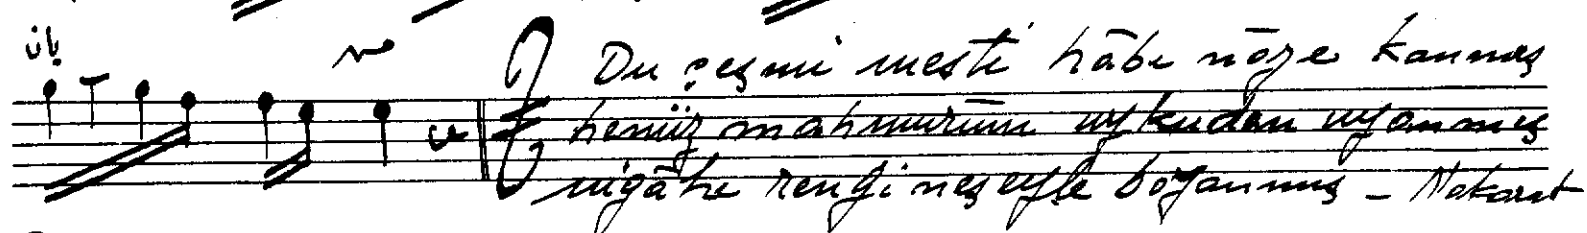 یان
Du çeşmi mesti hâbe nâze kanmış
henüz mahmurum uykudan uyanmış
nigâhe rengi neşeyle boyanmış – Nakarat